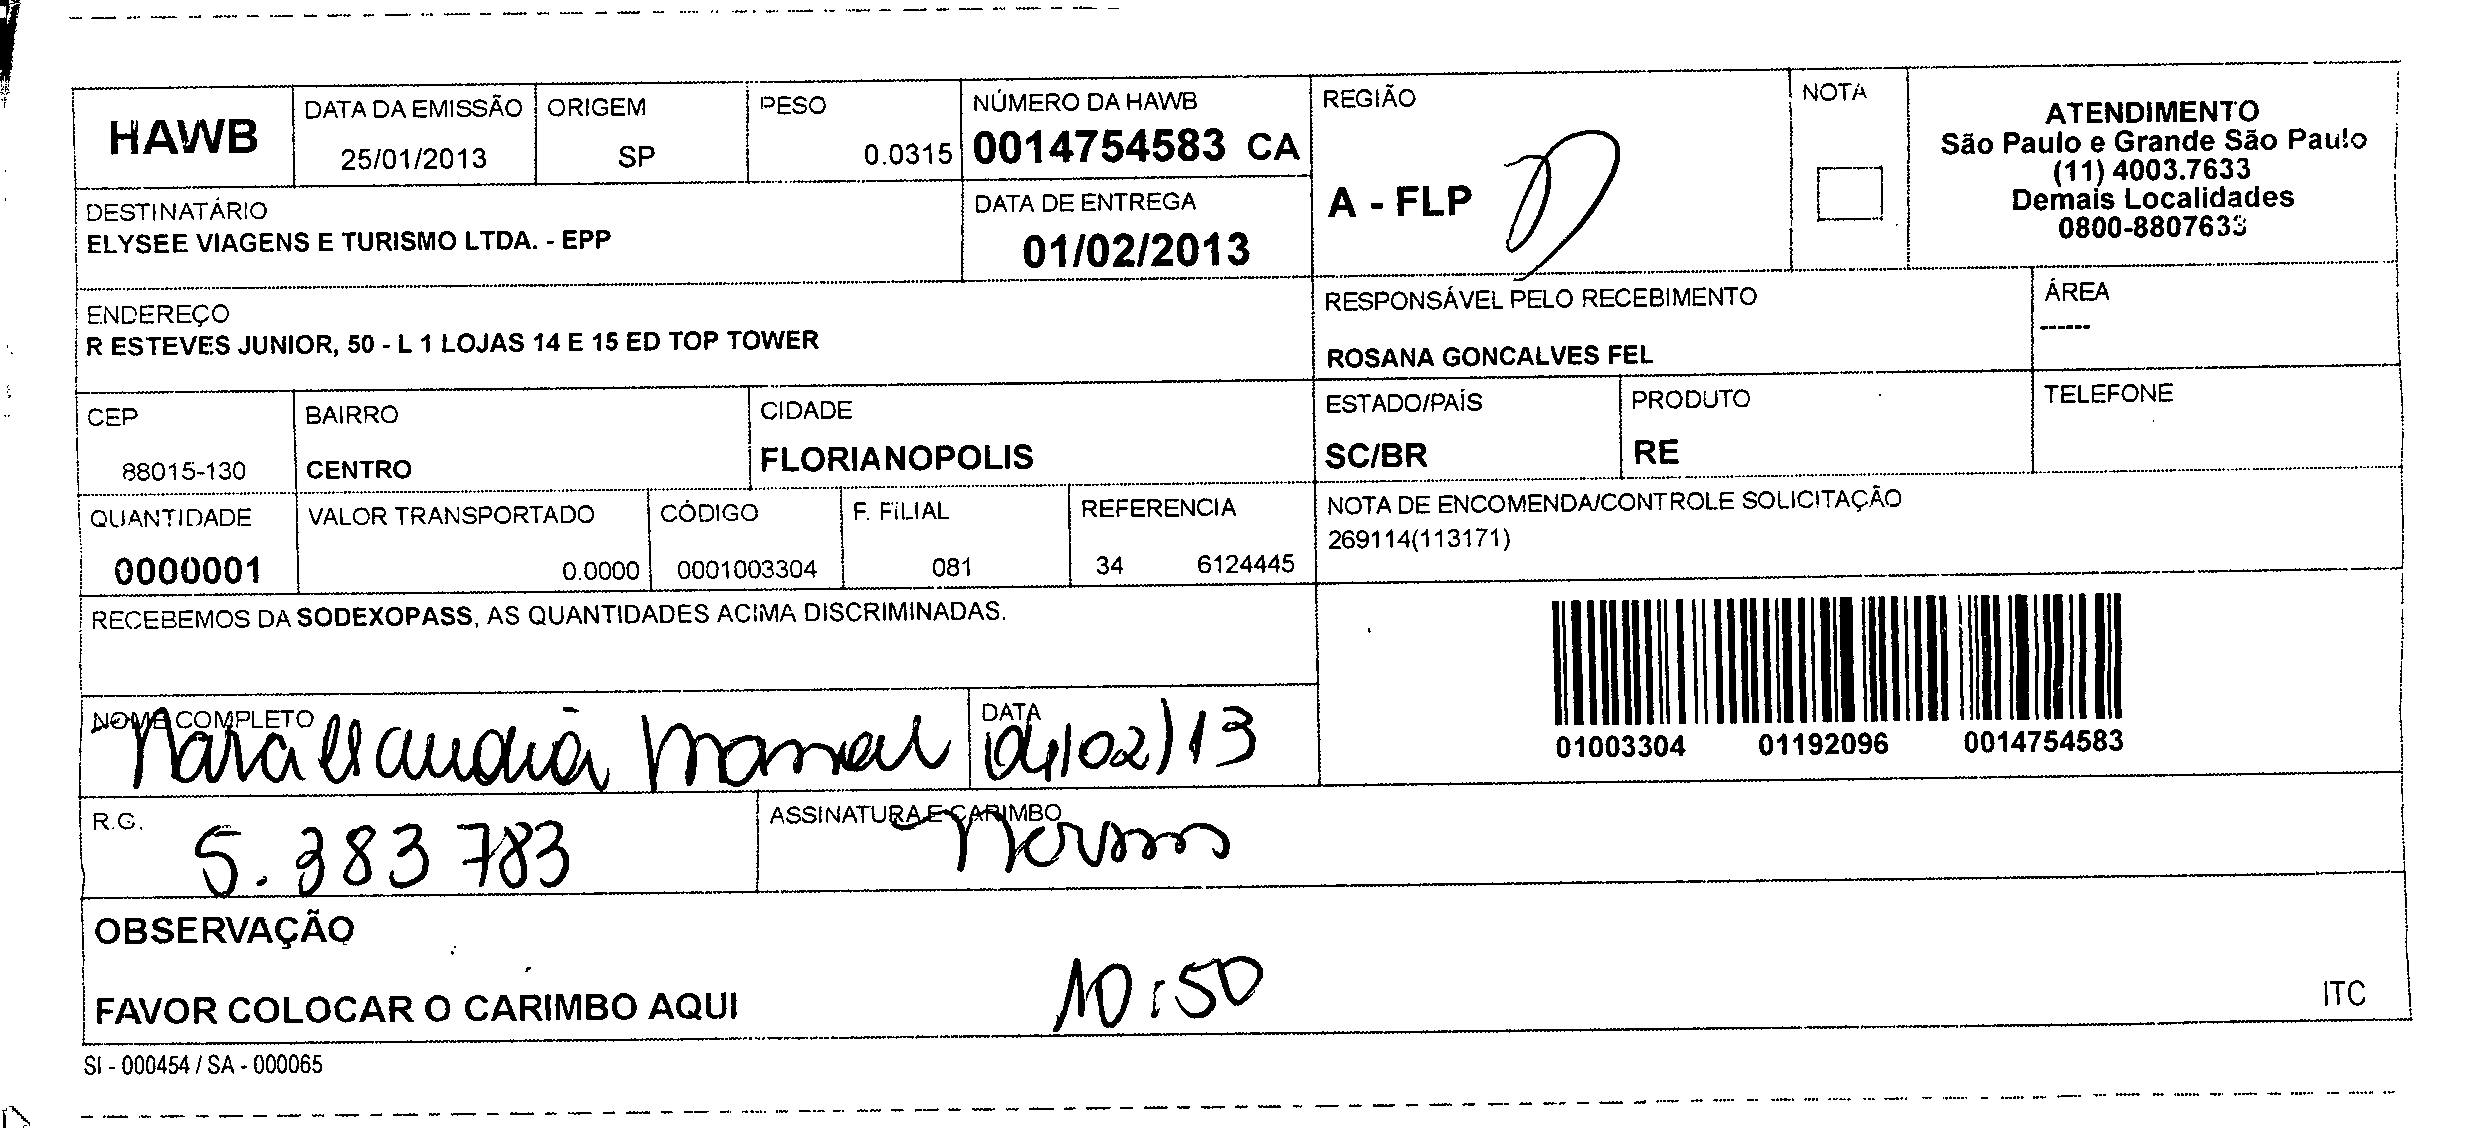 HAWB
DATA DA EMISSÃO
25/01/2013
ORIGEM
SP
PESO
0.0315
NÚMERO DA HAWB
0014754583 CA
REGIÃO
A - FLP
NOTA
ATENDIMENTO
São Paulo e Grande São Paulo
(11) 4003.7633
Demais Localidades
0800-8807633
DESTINATÁRIO
ELYSEE VIAGENS E TURISMO LTDA. - EPP
DATA DE ENTREGA
01/02/2013
ENDEREÇO
R ESTEVES JUNIOR, 50 - L 1 LOJAS 14 E 15 ED TOP TOWER
RESPONSÁVEL PELO RECEBIMENTO
ROSANA GONCALVES FEL
ÁREA
------
CEP
88015-130
BAIRRO
CENTRO
CIDADE
FLORIANOPOLIS
ESTADO/PAÍS
SC/BR
PRODUTO
RE
TELEFONE
QUANTIDADE
0000001
VALOR TRANSPORTADO
0.0000
CÓDIGO
0001003304
F. FILIAL
081
REFERENCIA
34 6124445
NOTA DE ENCOMENDA/CONTROLE SOLICITAÇÃO
269114(113171)
RECEBEMOS DA SODEXOPASS, AS QUANTIDADES ACIMA DISCRIMINADAS.
01003304 01192096 0014754583
NOME COMPLETO
Mara Claudia
DATA
04/02/13
R.G.
5.383783
ASSINATURA E CARIMBO
OBSERVAÇÃO
10:50
FAVOR COLOCAR O CARIMBO AQUI
ITC
SI - 000454 / SA - 000065